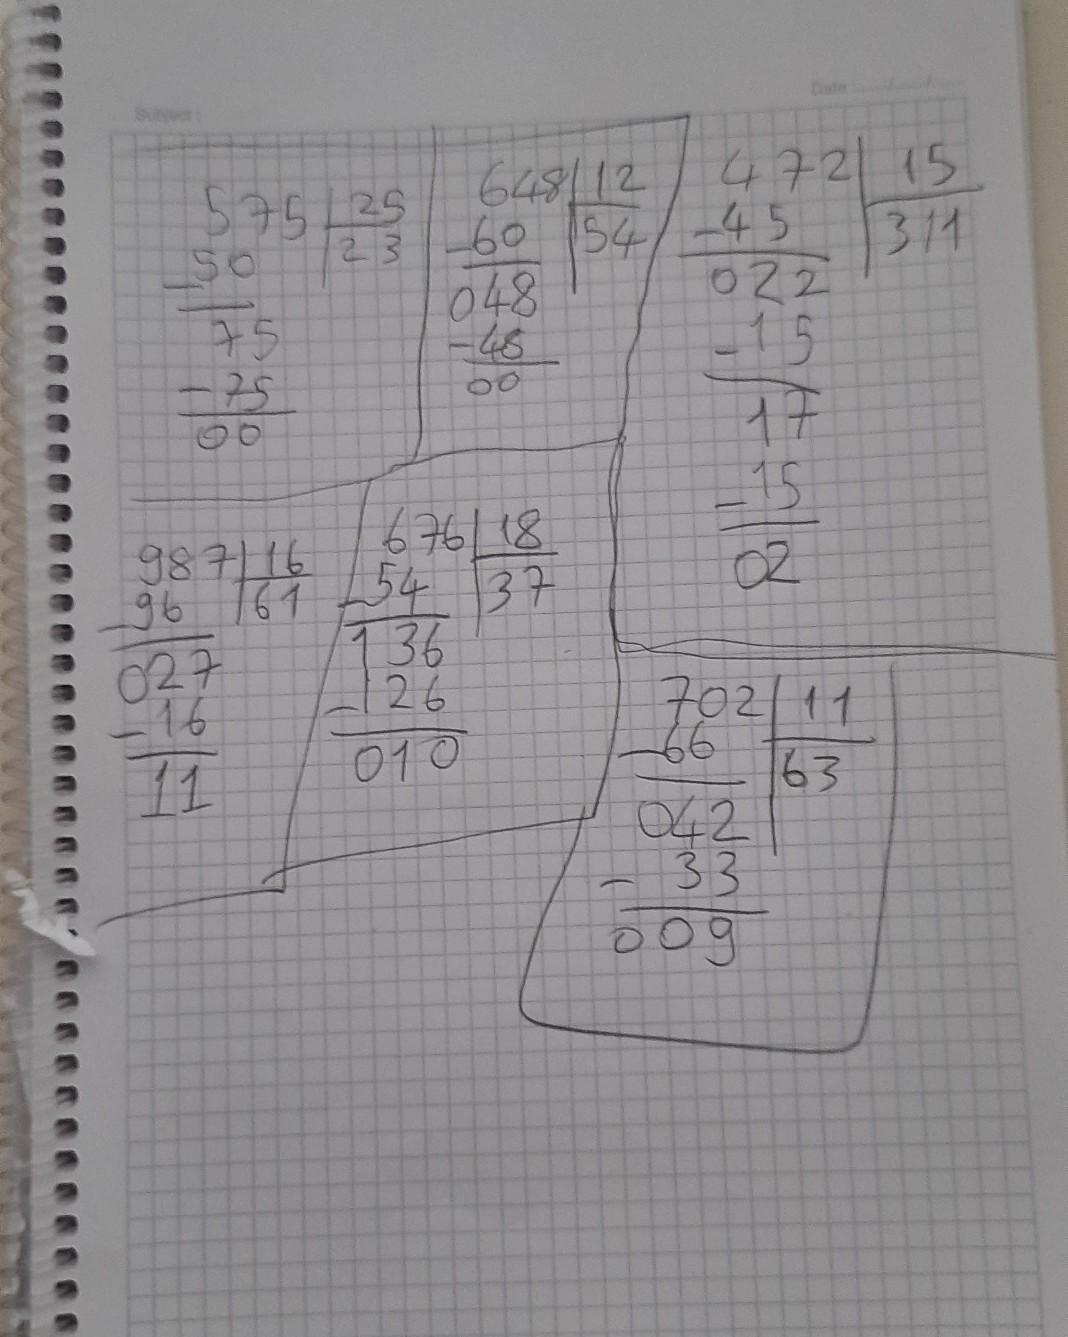 Subject :
Date ....../....../......
575 | 25
-50 | 23
75
-75
00
648 | 12
-60 | 54
048
-48
00
472 | 15
-45 | 311
022
-15
17
-15
02
987 | 16
-96 | 61
027
-16
11
676 | 18
-54 | 37
136
-126
010
702 | 11
-66 | 63
042
- 33
009